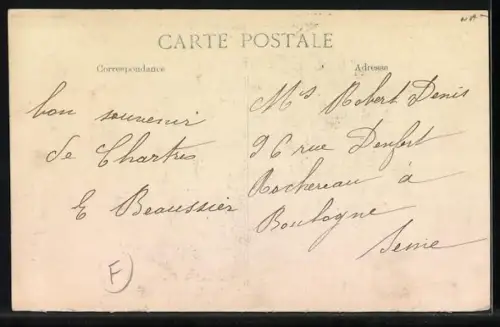 CARTE POSTALE
Correspondance
Adresse
bon souvenir
de Chartres
E Beaussier
Mrs Robert Denis
96 rue Denfert
Rochereau à
Boulogne
Seine
F